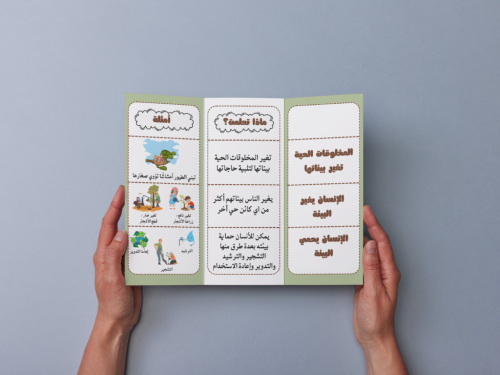 المخلوقات الحية
تغير بيئاتها
الإنسان يغير
البيئة
الإنسان يحمي
البيئة
ماذا تعلمت؟
تغير المخلوقات الحية
بيئاتها لتلبية حاجاتها
يغير الناس بيئاتهم أكثر
من اي كائن حي آخر
يمكن للأنسان حماية
بيئته بعدة طرق منها
التشجير والترشيد
والتدوير وإعادة الاستخدام
أمثلة
تبني الطيور أعشاشا تؤوي صغارها
تغير نافع-
زراعة الأشجار
تغير ضار-
قطع الأشجار
الترشيد
إعادة التدوير
التشجير